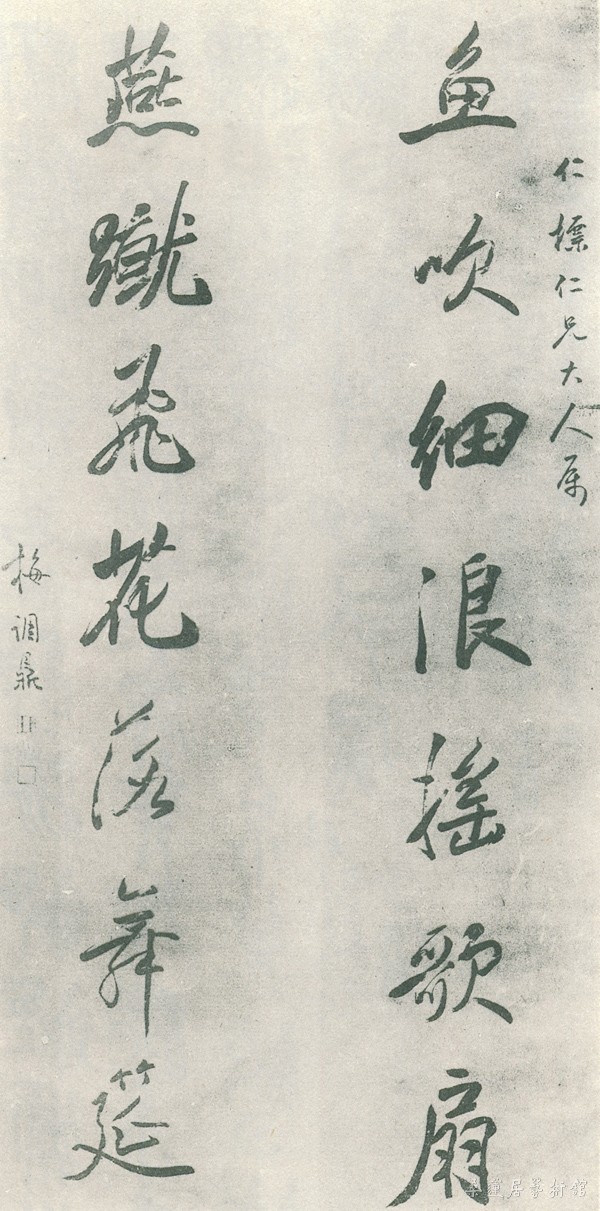 仁標仁兄大人属
鱼吹細浪摇歌扇
燕蹴飛花落舞筵
梅調鼎
居藝術館